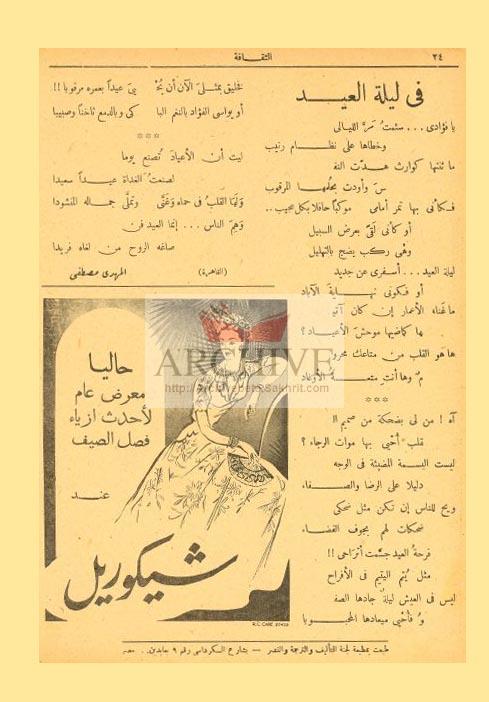 ٢٤
الثقافة
فى ليلة العيد
يا فؤادى ... سئمتُ مَرَّ الليالى
وخطاها على نظام رتيب
ما ثنتها كوارث هدّت النفـ
س وأودت بحلُمها المرقوب
فكأنى بها تمر أمامى موكباً حافلا بكل عجيب..
أو كأنى لَقىً بعرض السبيل
وهْى ركب يضج بالتهليل
ليلة العيد ... أسفرى عن جديد
أو فكونى نهاية الآباد
ما غناء الأعمار إن كان آتيـ
ها كماضيها موحش الأعياد ؟
ها هو القلب من متاعك محرو
م وها أنتِ متعـة
***
آه ! من لى بضحكة من صميم الـ
قلب أُحيى بها موات الرجاء ؟
ليست البسمة المضيئة فى الوجه
دليلا على الرضا والصفـاء
ويح للناس إن تكن مثل ضحكى
ضحكات لهم بجوف الفضـاء
فرحة العيد جسَّمت أتراحى !!
مثل يُتم اليتيم فى الأفراح
ليس فى العيش ليلةٌ جادها الصفـ
وُ فأحيى ميعادها المحبـوبا
فخليق بمثلىَ الآن أن يُحـْ
ـيىَ عيداً بعمره مرقوبا !!
أو يواسى الفؤاد بالنغم البا
كى وبالدمع وصبيبا
***
ليت أن الأعيادَ تُصنع يوما
لصنعتُ الغداة عيـداً سعيدا
القلبُ فى حماه وَغَنَّى وتملَّى جمـاله المنشودا
وَهِمَ الناس ... إنما العيد فن
صاغه الروح من لغاه فريدا
(القاهرة)
المهدى مصطفى
حاليا
معرض عام
لأحدث ازياء
فصل الصيف
عند
شيكوريل
ARCHIVE
http://Archivebeta.Sakhrit.com
طبعت بمطبعة لجنة التأليف والترجمة والنشر — بشارع الكرداسى رقم ٩ عابدين . مصر